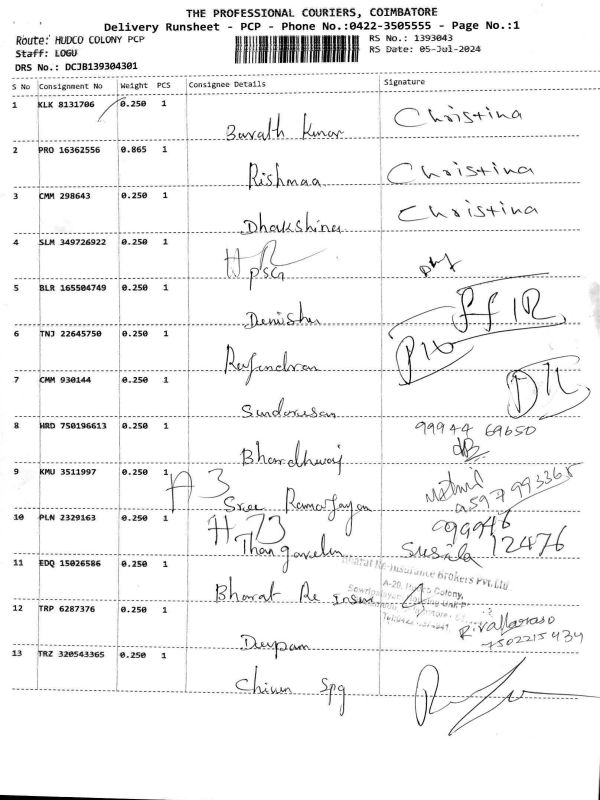 THE PROFESSIONAL COURIERS, COIMBATORE
Delivery Runsheet - PCP - Phone No.:0422-3505555 - Page No.:1
Route: HUDCO COLONY PCP
RS No.: 1393043
Staff: LOGU
RS Date: 05-Jul-2024
DRS No.: DCJB139304301
S No Consignment No Weight PCS Consignee Details Signature
1 KLK 8131706 0.250 1
Christina
Barath Kumar
2 PRO 16362556 0.865 1
Rishmaa Christina
3 CMM 298643 0.250 1
Christina
Dhakshina
4 SLM 349726922 0.250 1
PSG
5 BLR 165504749 0.250 1
Denisha
6 TNJ 22645750 0.250 1
Rajendran
7 CMM 930144 0.250 1
Sundaresan
8 HRD 750196613 0.250 1
99944 69650
Bhardhwaj
9 KMU 3511997 0.250 1
A 3
Sree Ramajayam
10 PLN 2329163 0.250 1
# 73
99946
Thangavelu Susila 12476
11 EDQ 15026586 0.250 1
Bharat Re-Insurance Brokers Pvt Ltd
Bharat Re Insu
12 TRP 6287376 0.250 1
7502215434
Deepam
13 TRZ 320543365 0.250 1
Spg